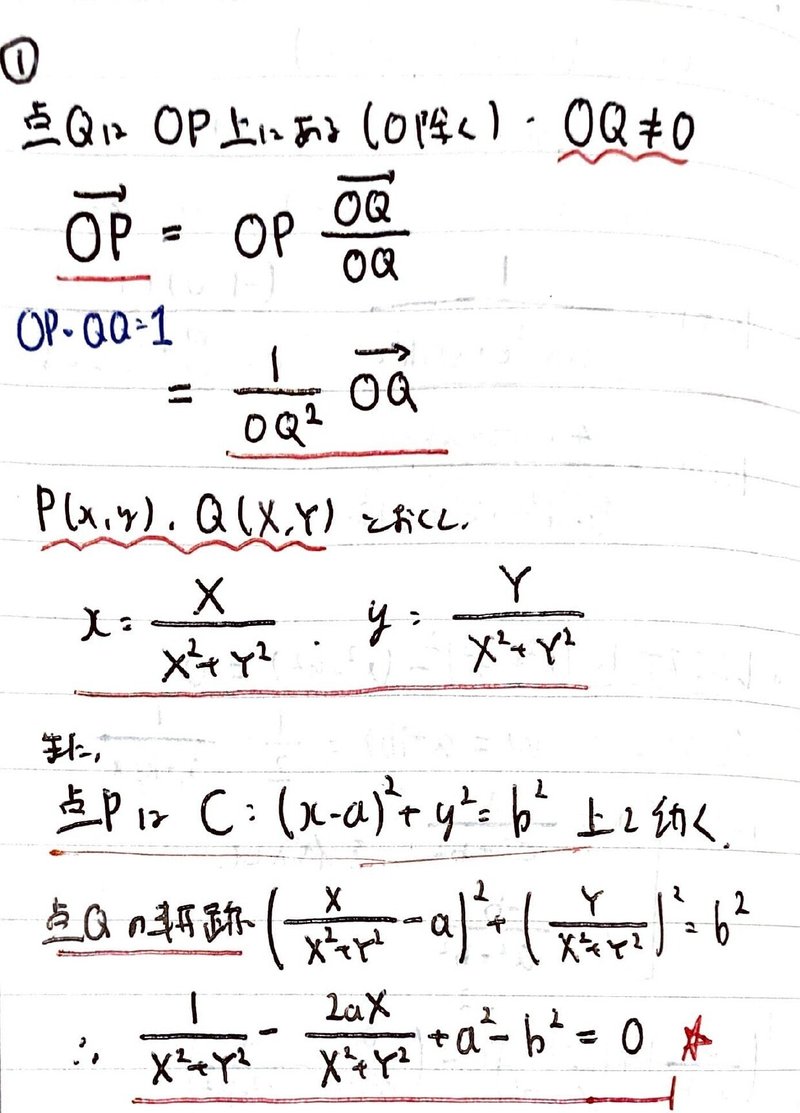 ①
点Qは OP上にある (O除く)・ OQ≠0
\overrightarrow{OP} = OP \frac{\overrightarrow{OQ}}{OQ}
OP・OQ=1
= \frac{1}{OQ^2} \overrightarrow{OQ}
P(x,y), Q(X,Y) とおくと,
x = \frac{X}{X^2+Y^2} . y = \frac{Y}{X^2+Y^2}
また,
点Pは C: (x-a)^2 + y^2 = b^2 上を動く.
点Qの軌跡 (\frac{X}{X^2+Y^2} - a)^2 + (\frac{Y}{X^2+Y^2})^2 = b^2
∴ \frac{1}{X^2+Y^2} - \frac{2aX}{X^2+Y^2} + a^2 - b^2 = 0 ☆